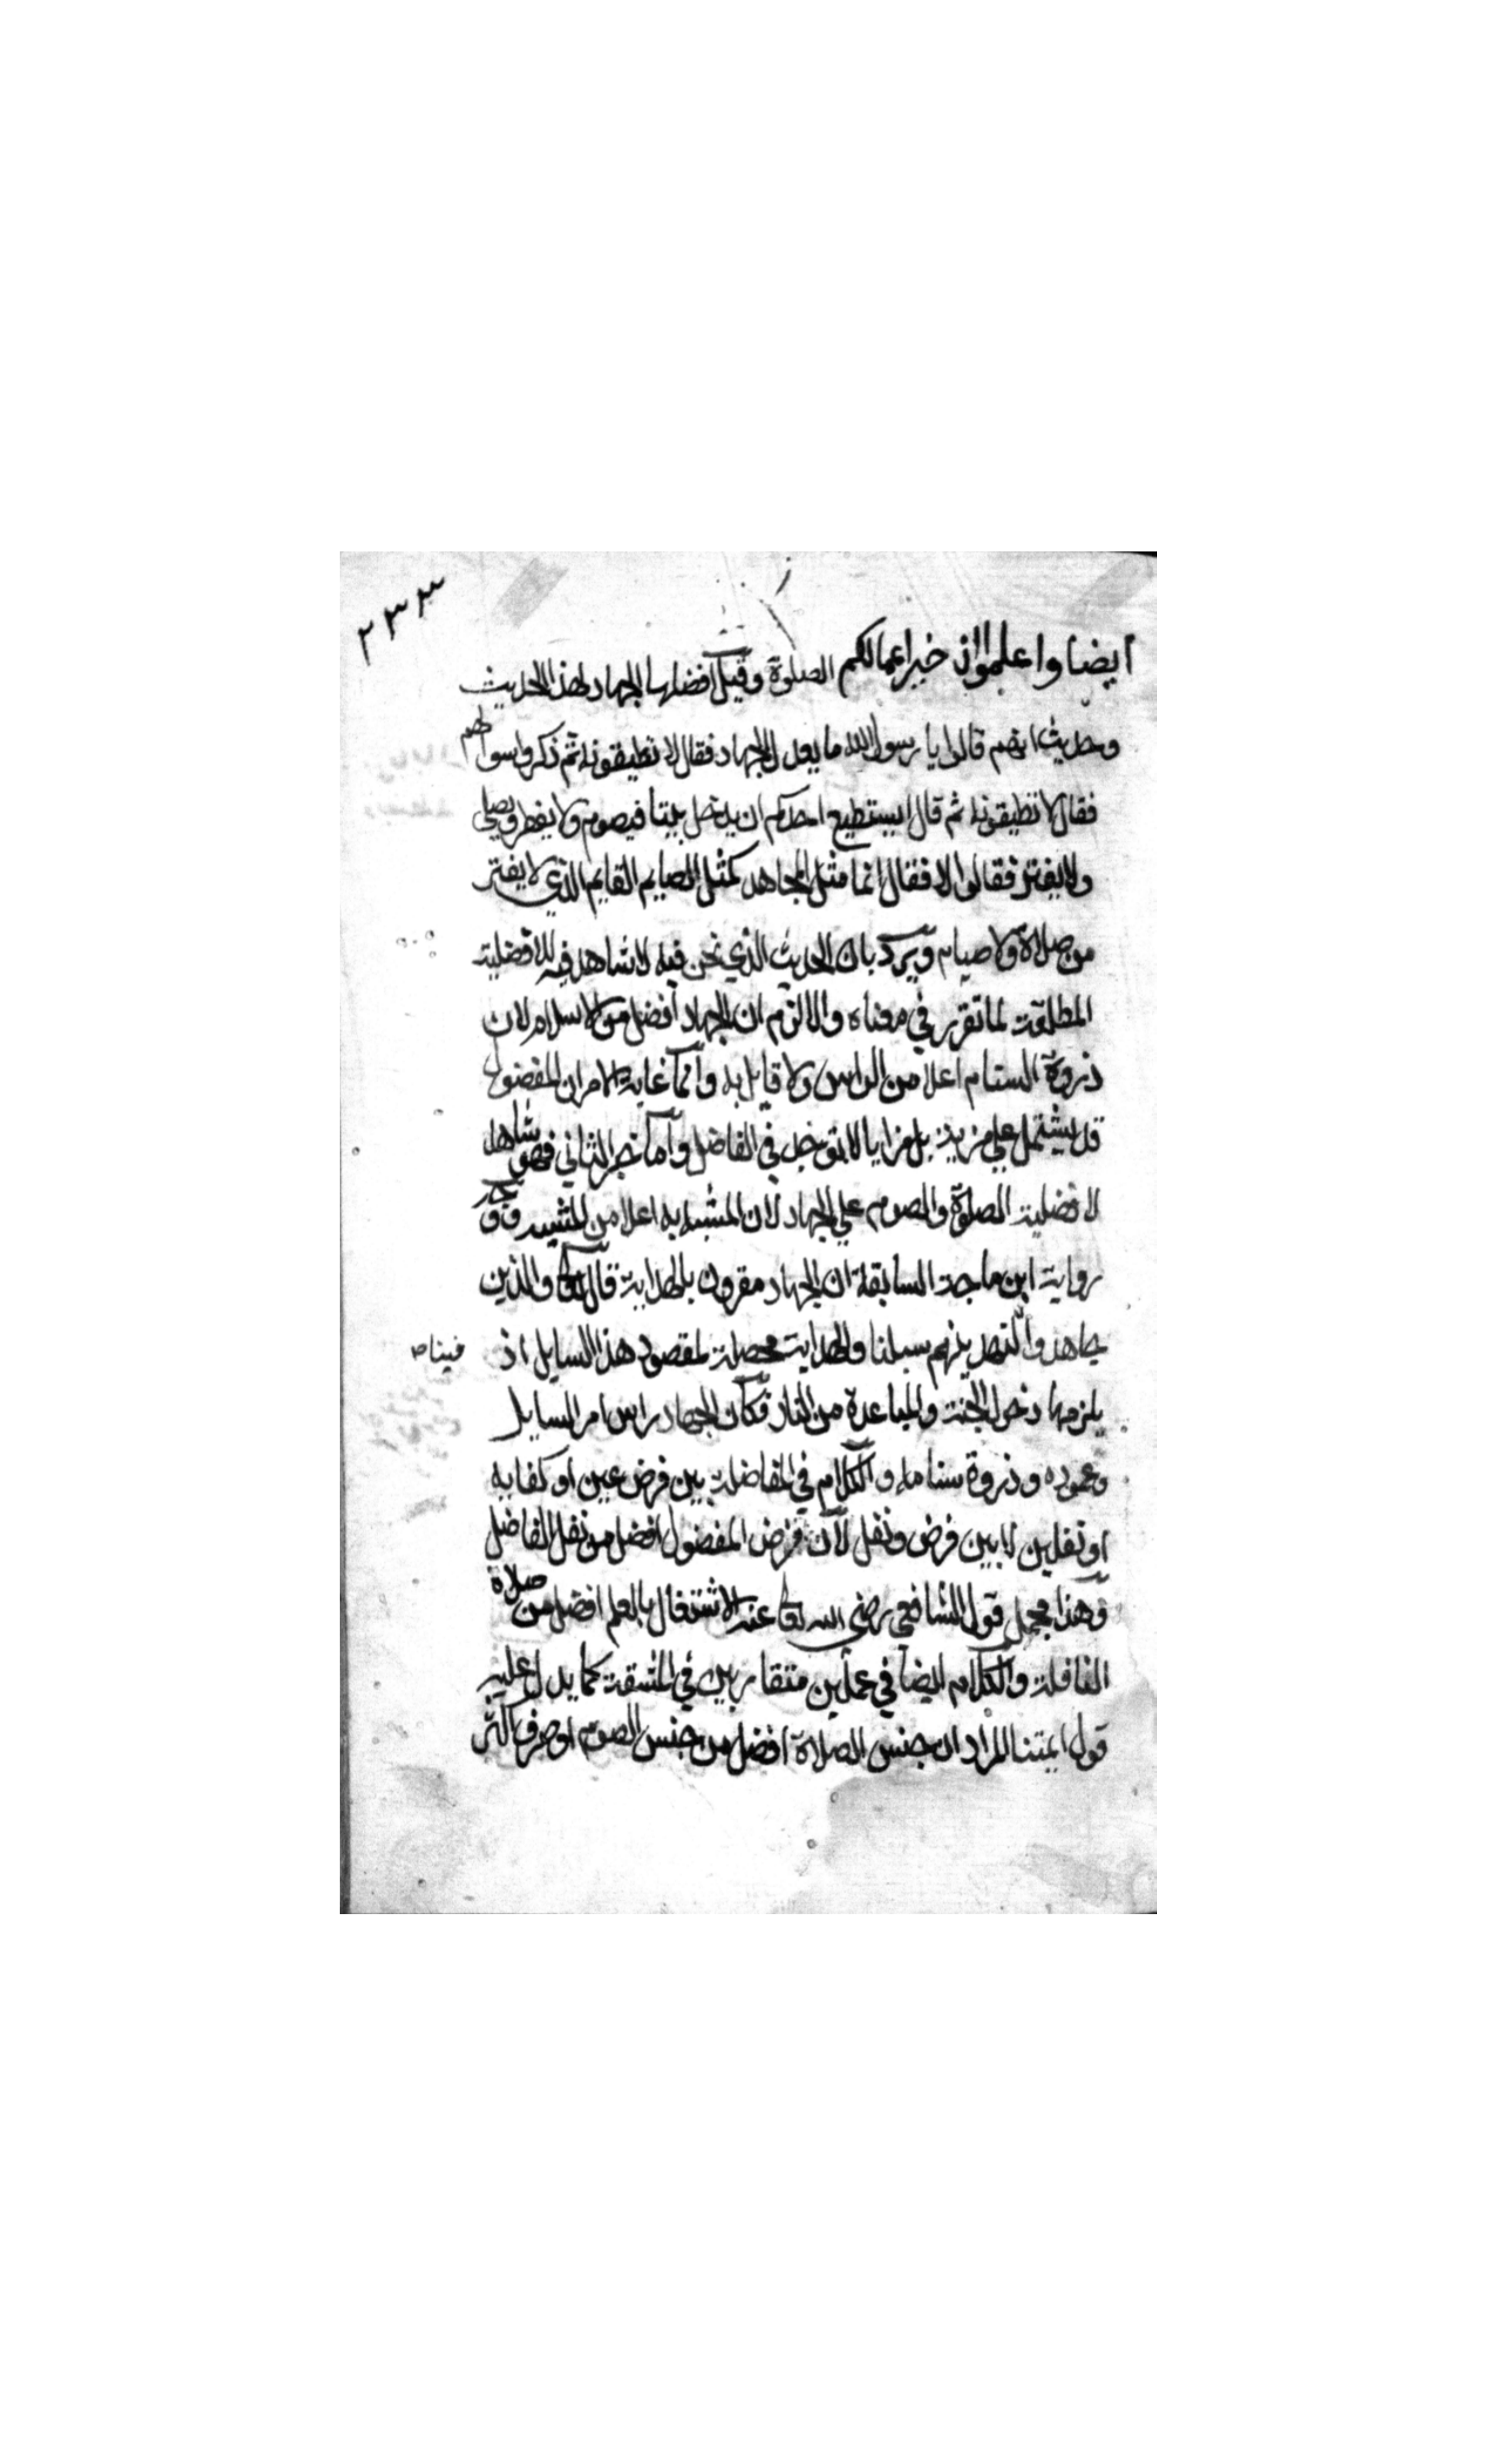 ٢٣٣
ايضا واعلموا ان خير اعمالكم الصلوة وقيل افضلها الجهاد لهذا الحديث
وحديث انهم قالوا يا رسول الله ما يعدل الجهاد فقال لا تطيقونه ثم ذكروا سوالهم
فقال لا تطيقونه ثم قال ايستطيع احدكم ان يدخل بيتا فيصوم ولا يفطر ويصلي
ولا يفتر فقالوا لا فقال انما مثل المجاهد كمثل الصايم القايم الذي لا يفتر
من صلاة ولا صيام ويرد بان الحديث الذي نحن فيه لا شاهد فيه للافضلية
المطلقة لما تقرر في معناه والا لزم ان الجهاد افضل من الاسلام لان
ذروة السنام اعلا من الراس ولا قايل به وانما غاية الامر ان المفضول
قد يشتمل علي مزية بل مزايا لا توجد في الفاضل واما خبر الثاني فهو شاهد
لا فضلية الصلوة والصوم علي الجهاد لان المشبه به اعلا من المشبه
رواية ابن ماجة السابقة ان الجهاد مقرون بالهداية قال تعالى والذين
جاهدوا لنهدينهم سبلنا والهداية محصلة لمقصود هذا السايل اذ
فينا صح
يلزمها دخول الجنة والمباعدة من النار فكان الجهاد راس امر السايل
وعموده وذروة سنامه والكلام في المفاضلة بين فرض عين او كفاية
او نفلين لا بين فرض ونفل لان فرض المفضول افضل من نفل الفاضل
وهذا محمل قول الشافعي رضي الله تعالى عنه الاشتغال بالعلم افضل من صلاة
النافلة والكلام ايضا في عملين متقاربين في المشقة كما يدل عليه
قول ايمتنا المراد ان جنس الصلاة افضل من جنس الصوم او صرف اكثر